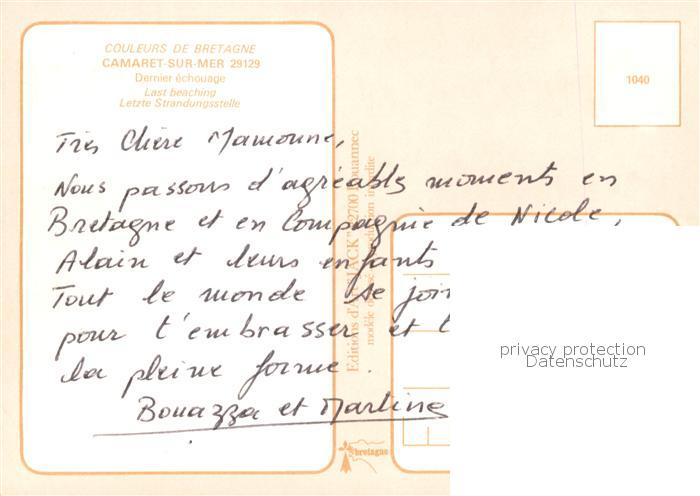 COULEURS DE BRETAGNE
CAMARET-SUR-MER 29129
Dernier échouage
Last beaching
Letzte Strandungsstelle
1040
Très Chère Mamoune,
Nous passons d'agréables moments en
Bretagne et en Compagnie de Nicole,
Alain et leurs enfants
Tout le monde se join
pour t'embrasser et t
la pleine forme.
Bouazza et Martine
Editions d'Art "JACK" 22700 Louannec
modèle déposé reproduction interdite
bretagne
privacy protection
Datenschutz